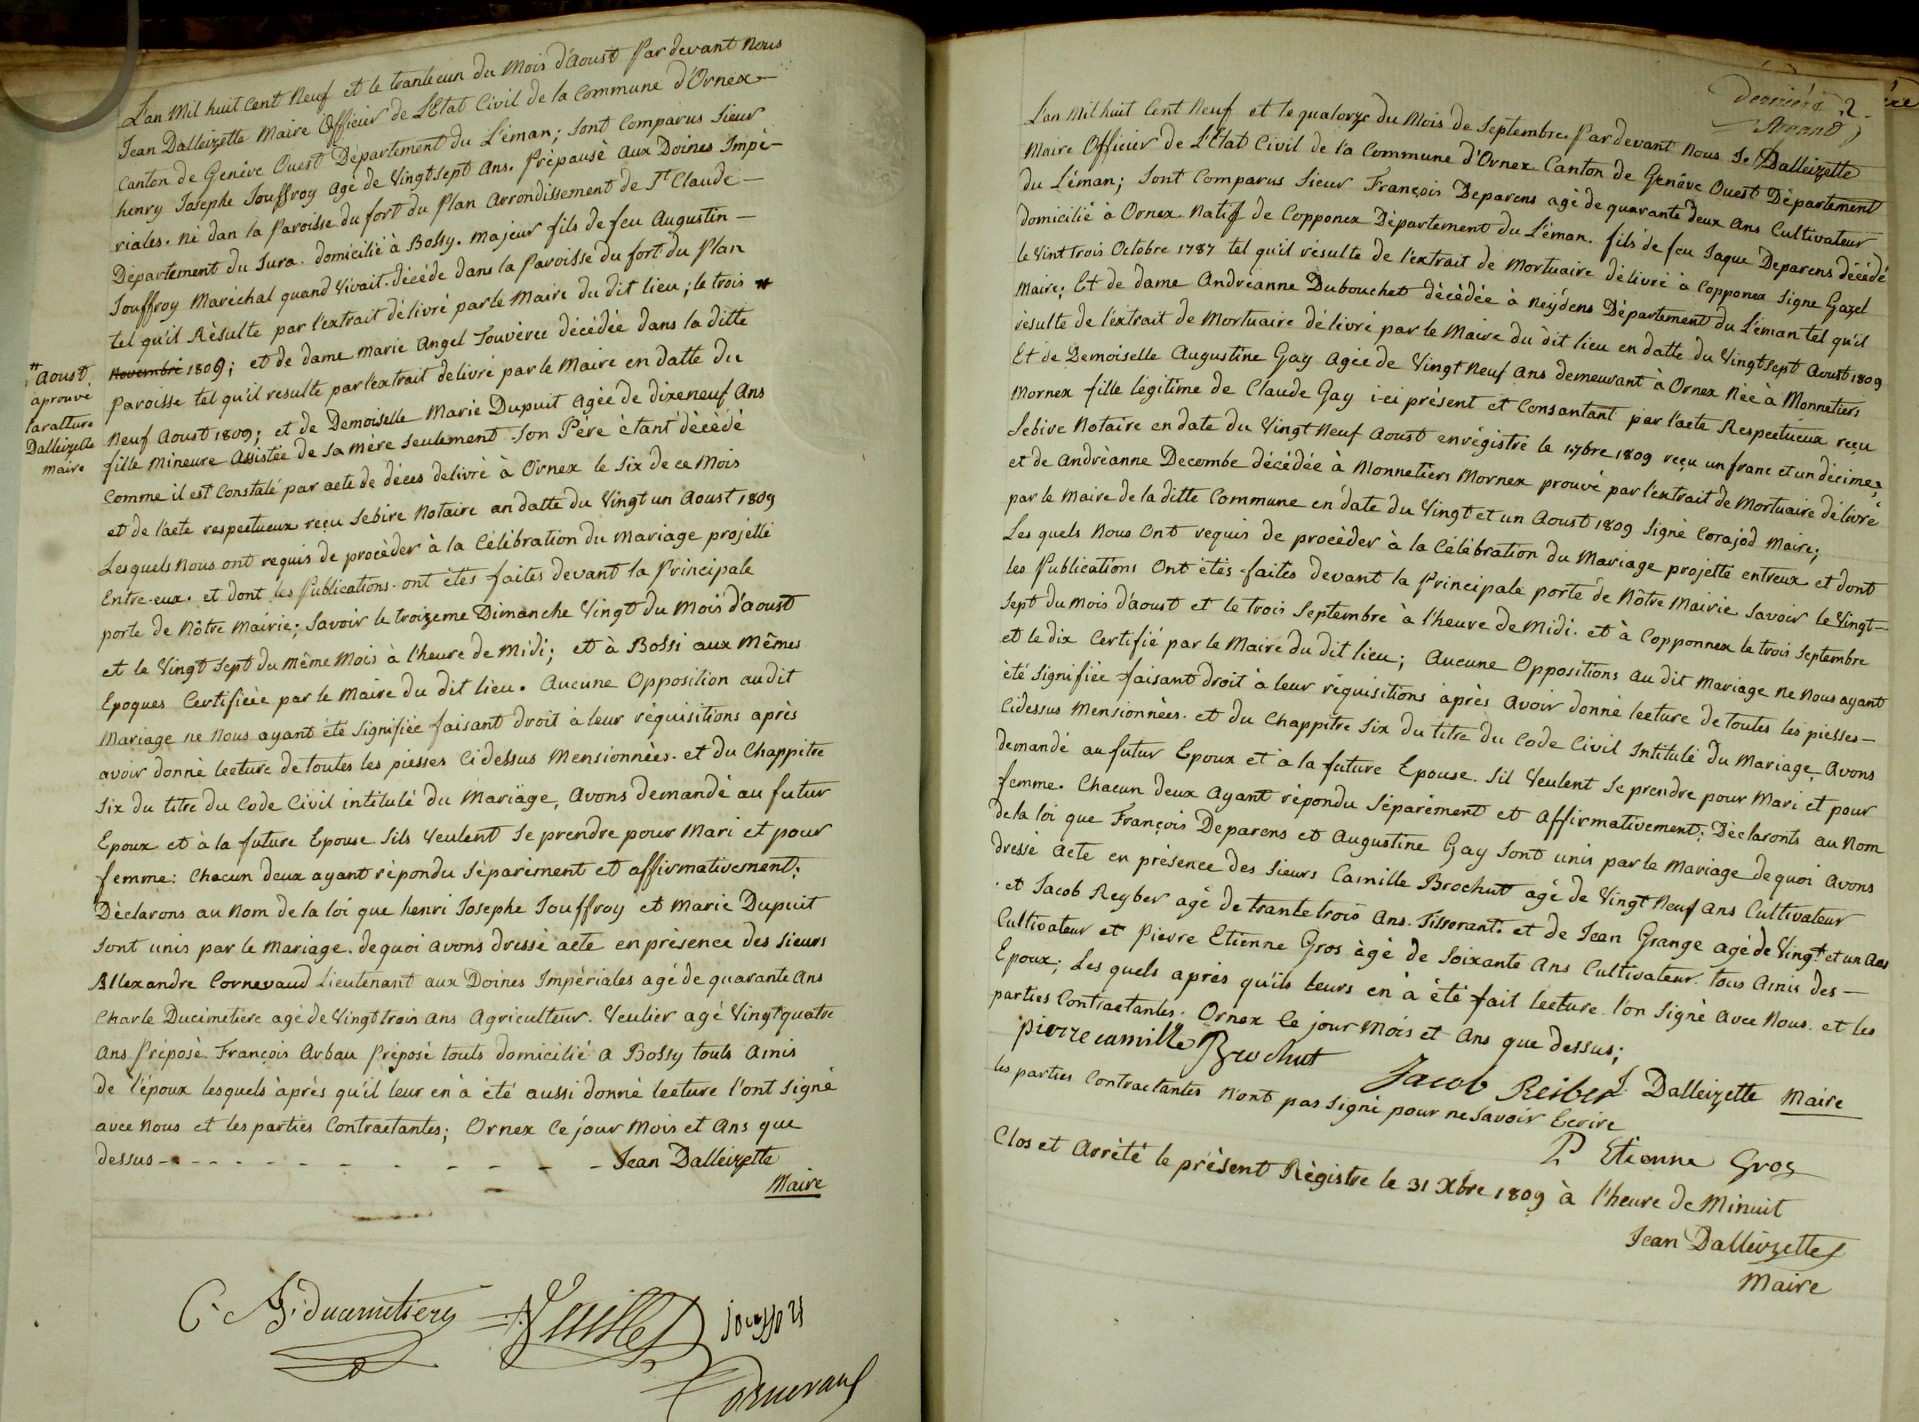 L'an Mil huit Cent Neuf et le trantecun du Mois d'Aoust Par devant Nous
Jean Dalleizette Maire Officier de L'Etat Civil de la Commune d'Ornex
Canton de Genêve Ouest Département du Léman; Sont Comparus Sieur
henry Josephe Jouffroy agé de Vingt sept Ans. Prépausè aux Doines Impé-
riales. Né dan la Paroisse du fort du Plan Arrondissement de St Claude
Département du Jura. domicilié à Bossy. Majeur fils de feu Augustin
Jouffroy Maréchal quand Vivait. décéde dans la Paroisse du fort du Plan
tel qu'il Résulte par l'extrait délivré par le Maire du dit lieu; le trois #
Novembre 1809; et de dame Marie Angel Jouvèrce décédée dans la ditte
Paroisse tel qu'il resulte par l'extrait delivré par le Maire en datte du
Neuf Aoust 1809; et de Demoiselle Marie Dupuit Agée de dixeneuf Ans
fille Mineure Assistée de Sa Mère Seulement Son Père étant décèdé
Comme il est Constaté par acte de déces delivré à Ornex le Six de ce Mois
et de l'acte respectueux reçu Sebire Notaire an datte du Vingt un Aoust 1809
Lesquels Nous ont requis de procèder à la Célébration du Mariage projetté
Entre-eux. et dont les Publications ont étés faites devant la Principale
porte de Nôtre Mairie; Savoir le troizeme Dimanche Vingt du Mois d'aoust
et le Vingt Sept du même Mois à l'heure de Midi; et à Bossi aux Mêmes
Epoques Certifiée par le Maire du dit lieu. Aucune Opposition audit
Mariage ne Nous ayant été Signifiée faisant droit à leur réquisitions après
avoir donnè lecture de toutes les piesses Cidessus Mensionnèes. et du Chappitre
Six du titre du Code Civil intitulé du Mariage, Avons demandé au futur
Epoux et à la future Epouse Sils Veulent Se prendre pour Mari et pour
femme: Chacun deux ayant répondu Séparément et affirmativement;
Déclarons au Nom de la loi que henri Josephe Jouffroy et Marie Dupuit
Sont unis par le Mariage. dequoi avons dressé acte en présence des Sieurs
Allexandre Cornevaud Lieutenant aux Doines Impériales agé de quarante Ans
Charle Ducimetiere agé de Vingt trois ans Agriculteur. Veulier agé Vingt quatre
Ans Préposè François Arbau Préposè touts domicilié a Bossy touts Amis
de l'époux lesquels àprès qu'il leur en à été aussi donné lecture l'ont Signé
avec Nous et les parties Contractantes; Ornex Ce jour Mois et Ans que
dessus - - - - - - - - - - - Jean Dalleizette
Maire
# Aoust
aprouvé
laralture
Dalleizette
maire
Jouffroy
Cornevaud
derniére
2
L'an Mil huit Cent Neuf et le quatorze du Mois de Septembre Par devant Nous Jn Dalleizette
Maire Officier de L'Etat Civil de la Commune d'Ornex Canton de Genêve Ouest Département
du Léman; Sont Comparus Sieur François Deparens agé de quarante deux Ans Cultivateur
domicilié à Ornex Natif de Copponex Département du Léman. fils de feu Jaque Deparens décèdé
le Vint trois Octobre 1787 tel qu'il résulte de l'extrait de Mortuaire délivré à Copponex Signe Gazel
Maire; Et de dame Andréanne Dubouchet décèdée à Neÿdens Département du Léman tel qu'il
résulte de l'extrait de Mortuaire délivré par le Maire du dit lieu en datte du Vingt sept Aoust 1809
Et de Demoiselle Augustine Gay Agée de Vingt Neuf ans demeurant à Ornex Née à Monnetiers
Mornex fille légitime de Claude Gay i-ci présent et Consantant par l'acte Respectueux reçu
Sebire Notaire en date du Vingt Neuf Aoust enrégistré le 1 7bre 1809 reçu un franc et un décime;
et de Andréanne Decombe décédée à Monnetiers Mornex prouvé par l'extrait de Mortuaire délivré
par le Maire de la ditte Commune en date du Vingt et un Aoust 1809 Signé Corajod Maire;
Les quels Nous Ont requis de procèder à la Célébration du Mariage projetté entreux. et dont
les Publications Ont étés faites devant la Principale porte de Nôtre Mairie Savoir le Vingt-
Sept du Mois d'aoust et le trois Septembre à l'heure de Midi. et à Copponnex le trois Septembre
et le dix Certifié par le Maire du dit lieu; Aucune Oppositions au dit Mariage ne Nous ayant
été Signifiée faisant droit à leur réquisitions après Avoir donné lecture de toutes les piesses-
Cidessus Mensionnèes. et du Chappitre Six du titre du Code Civil Intitulé du Mariage, Avons
demandé au futur Epoux et à la future Epouse. Sil Veulent Se prendre pour Mari et pour
femme. Chacun deux Ayant répondu Séparément et Affirmativement; Déclaronts au Nom
de la loi que François Deparens et Augustine Gay Sont unis par le Mariage dequoi Avons
dressé Acte en présence des Sieurs Camille Brochut agé de Vingt Neuf ans Cultivateur
. et Jacob Reyber agé de trante trois Ans. Tisserant. et de Jean Grange agé de Vingt et un Ans
Cultivateur et Pierre Etienne Gros àgé de Soixante Ans Cultivateur. tous Amis des-
Epoux; Les quels après qu'ils leurs en à été fait lecture l'on Signé Avec Nous et les
parties Contractantes. Ornex Ce jour Mois et Ans que dessus;
pierre camille Brochut
Jacob Reiber J. Dalleizette Maire
les parties Contractantes N'ont pas Signé pour ne Savoir Ecrire
P Etienne Gros
Clos et Arrêté le présent Règistre le 31 Xbre 1809 à l'heure de Minuit
Jean Dalleizette
Maire